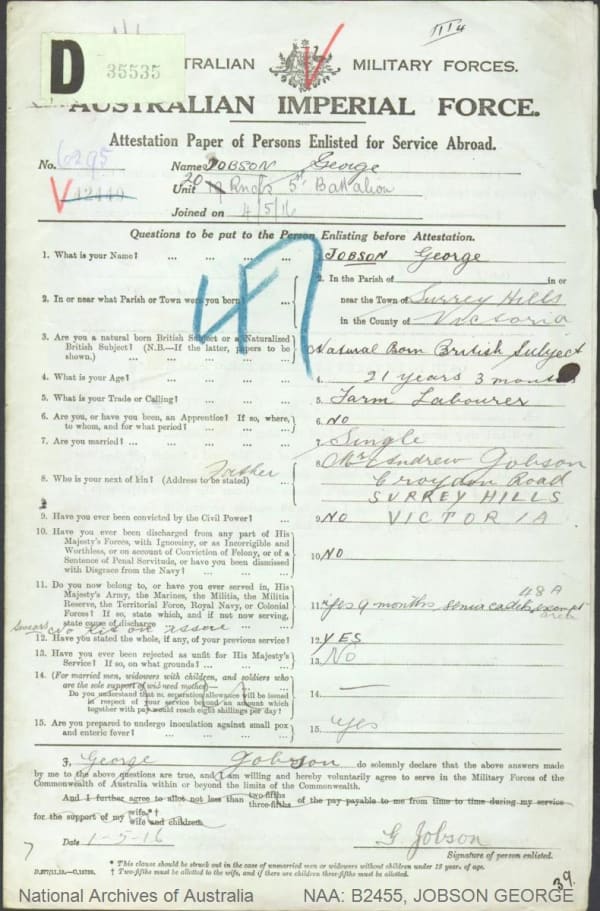 D 35535
AUSTRALIAN MILITARY FORCES.
AUSTRALIAN IMPERIAL FORCE.
Attestation Paper of Persons Enlisted for Service Abroad.
No. 6295 Name JOBSON George
12440 Unit 20 Rncfs 5' Battalion
Joined on 4/5/16
Questions to be put to the Person Enlisting before Attestation.
1. What is your Name? ... ... ... ... JOBSON George
2. In or near what Parish or Town were you born? ... In the Parish of in or
near the Town of Surrey Hills
in the County of Victoria
3. Are you a natural born British Subject or a Naturalized
British Subject? (N.B.—If the latter, papers to be
shown.) ... ... ... ... Natural Born British Subject
4. What is your Age? ... ... ... ... 4. 21 years 3 months
5. What is your Trade or Calling? ... ... ... 5. Farm Labourer
6. Are you, or have you been, an Apprentice? If so, where,
to whom, and for what period? ... ... ... 6. NO
7. Are you married? ... ... ... ... 7. Single
8. Who is your next of kin? (Address to be stated) ... Father 8 Mr Andrew Jobson
Croydon Road
SURREY HILLS
9. Have you ever been convicted by the Civil Power? ... 9. NO VICTORIA
10. Have you ever been discharged from any part of His
Majesty's Forces, with Ignominy, or as Incorrigible and
Worthless, or on account of Conviction of Felony, or of a
Sentence of Penal Servitude, or have you been dismissed
with Disgrace from the Navy? ... ... ... 10. NO
11. Do you now belong to, or have you ever served in, His
Majesty's Army, the Marines, the Militia, the Militia
Reserve, the Territorial Force, Royal Navy, or Colonial
Forces? If so, state which, and if not now serving,
state cause of discharge 11. Yes 9 months, senior cadets, exempt area 48 A
Swears no Kit on issue
12. Have you stated the whole, if any, of your previous service? 12. YES
13. Have you ever been rejected as unfit for His Majesty's
Service? If so, on what grounds? ... ... ... 13. No
14. (For married men, widowers with children, and soldiers who
are the sole support of widowed mother—
Do you understand that no separation allowance will be issued
in respect of your service beyond an amount which
together with pay would reach eight shillings per day? 14. —
15. Are you prepared to undergo inoculation against small pox
and enteric fever? ... ... ... ... 15. Yes
I, George Jobson do solemnly declare that the above answers made
by me to the above questions are true, and I am willing and hereby voluntarily agree to serve in the Military Forces of the
Commonwealth of Australia within or beyond the limits of the Commonwealth.
And I further agree to allot not less than two-fifths three-fifths of the pay payable to me from time to time during my service
for the support of my wife.*† wife and children.
Date 1-5-16 G Jobson
Signature of person enlisted.
* This clause should be struck out in the case of unmarried men or widowers without children under 18 years of age.
† Two-fifths must be allotted to the wife, and if there are children three-fifths must be allotted.
39.
National Archives of Australia NAA: B2455, JOBSON GEORGE